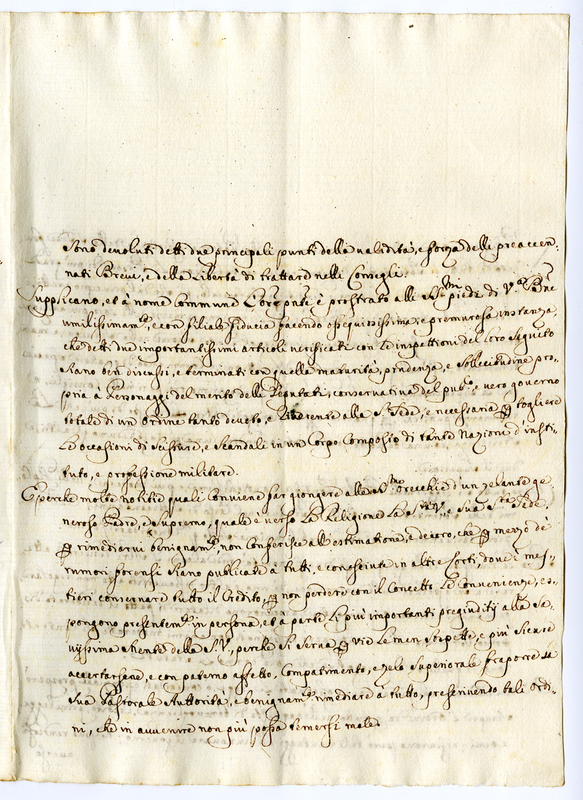 sono devoluti detti due principali punti della validità, e forza delli preaccen:
nati Brevi, e della libertà di trattare nelli Consegli.
Supplicano, et à nome Commune l'Ore prostrato alli Smi piedi di V.
umilissimamte, e con filiale fiducia facendo ossequiosissima, e premurosa instanza,
che detti due importantissimi articoli verificati con le inspettioni del loro sequito
siano ben discussi, e terminati con quella maturità, prudenza, e sollecitudine pro:
pria a Personaggi del merito delli Deputati, conservativa del pubco, e vero governo
totale di un ordine tanto devoto, e alla Sta Sede, e necessaria p togliere
le occasioni di scissure, e scandali in un Corpo composto di tante Nazioni d'insti:
tuto, e professione militare.
E perche molte notitie quali conviene far giongere alle Sme orecchie d'un zelante ge:
neroso Padre, e supremo, quale è verso la Religione la Stà V., e Sua Sta Sede,
p rimediarvi benignamte, non conferisce all'estimatione, e decoro, che p mezzo de
rumori forensi siano publicate à tutti, e conosciute in altre Corti, dove è mes:
tieri conservare tutto il Credito, p non perdere con il Concetto le Convenienze, es:
pongono presentemte in persona, et à parte li più importanti pregiuditij alla Sa:
vijssima Mente della S.V., perche si serva p vie le men sospette, e più sicure
accertarsene, e con paterno affetto, Compatimento, e zelo superiorale fraporre la
sua Pastorale Auttorità, e benignamte rimediare à tutto, prescrivendo tali ordi:
ni, che in avvenire non più possa temersi male.